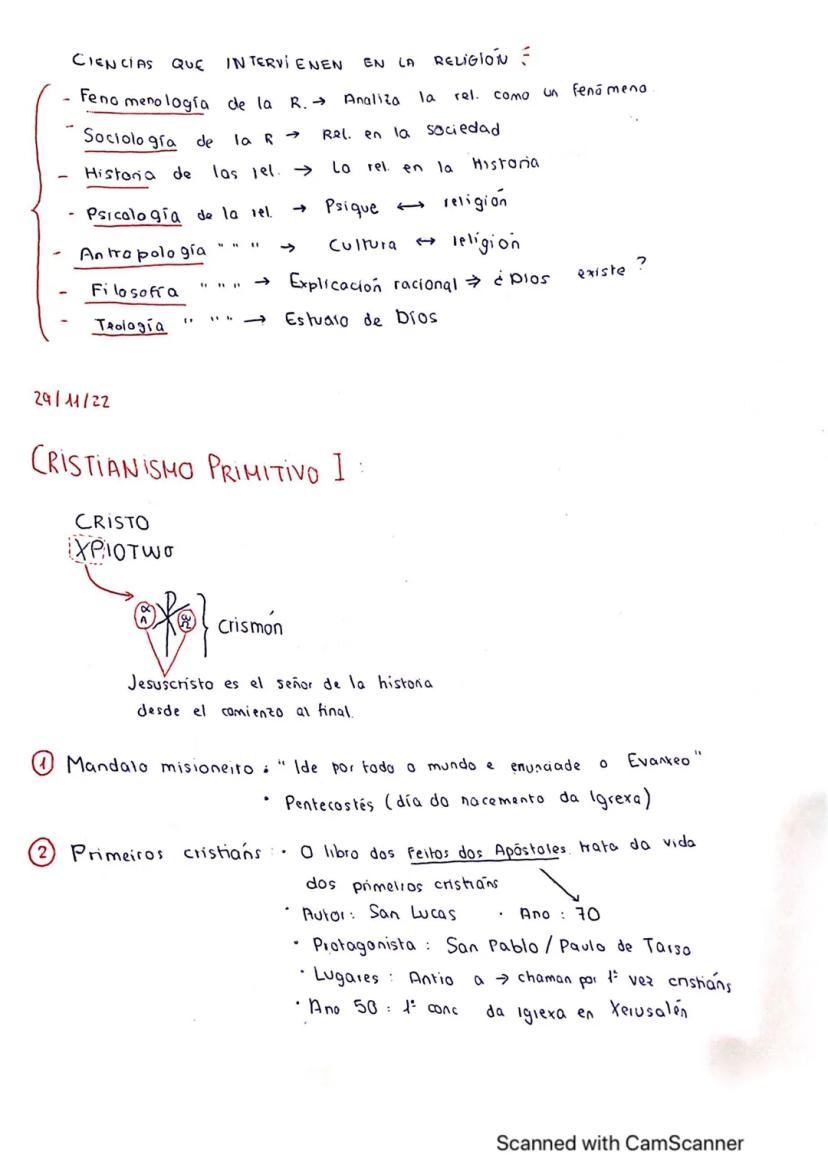 CIENCIAS QUE INTERVIENEN EN LA RELIGIÓN:
- Fenomenología de la R. → Analiza la rel. como un fenómeno.
- Sociología de la R → Rel. en la sociedad
- Historia de las rel. → La rel. en la Historia
- Psicología de la rel. → Psique ↔ religión
- Antropología " " " → Cultura ↔ religión
- Filosofía " " " → Explicación racional ⇒ ¿Dios existe?
- Teología " " " → Estudio de Dios
29/11/22
CRISTIANISMO PRIMITIVO I:
CRISTO
ΧΡΙΟΤWσ
α
A
ω
Ω
Crismón
Jesuscristo es el señor de la historia
desde el comienzo al final.
① Mandato misioneiro: "Ide por todo o mundo e enunciade o Evanxeo"
· Pentecostés (día do nacemento da Igrexa)
② Primeiros cristiáns: · O libro dos Feitos dos Apóstoles. trata da vida
dos primeiros cristiáns
· Autor: San Lucas · Ano: 70
· Protagonista: San Pablo / Paulo de Tarso
· Lugares: Antio a → chaman por 1ª vez cristiáns
· Ano 50: 1º conc da Igrexa en Xerusalén
Scanned with CamScanner